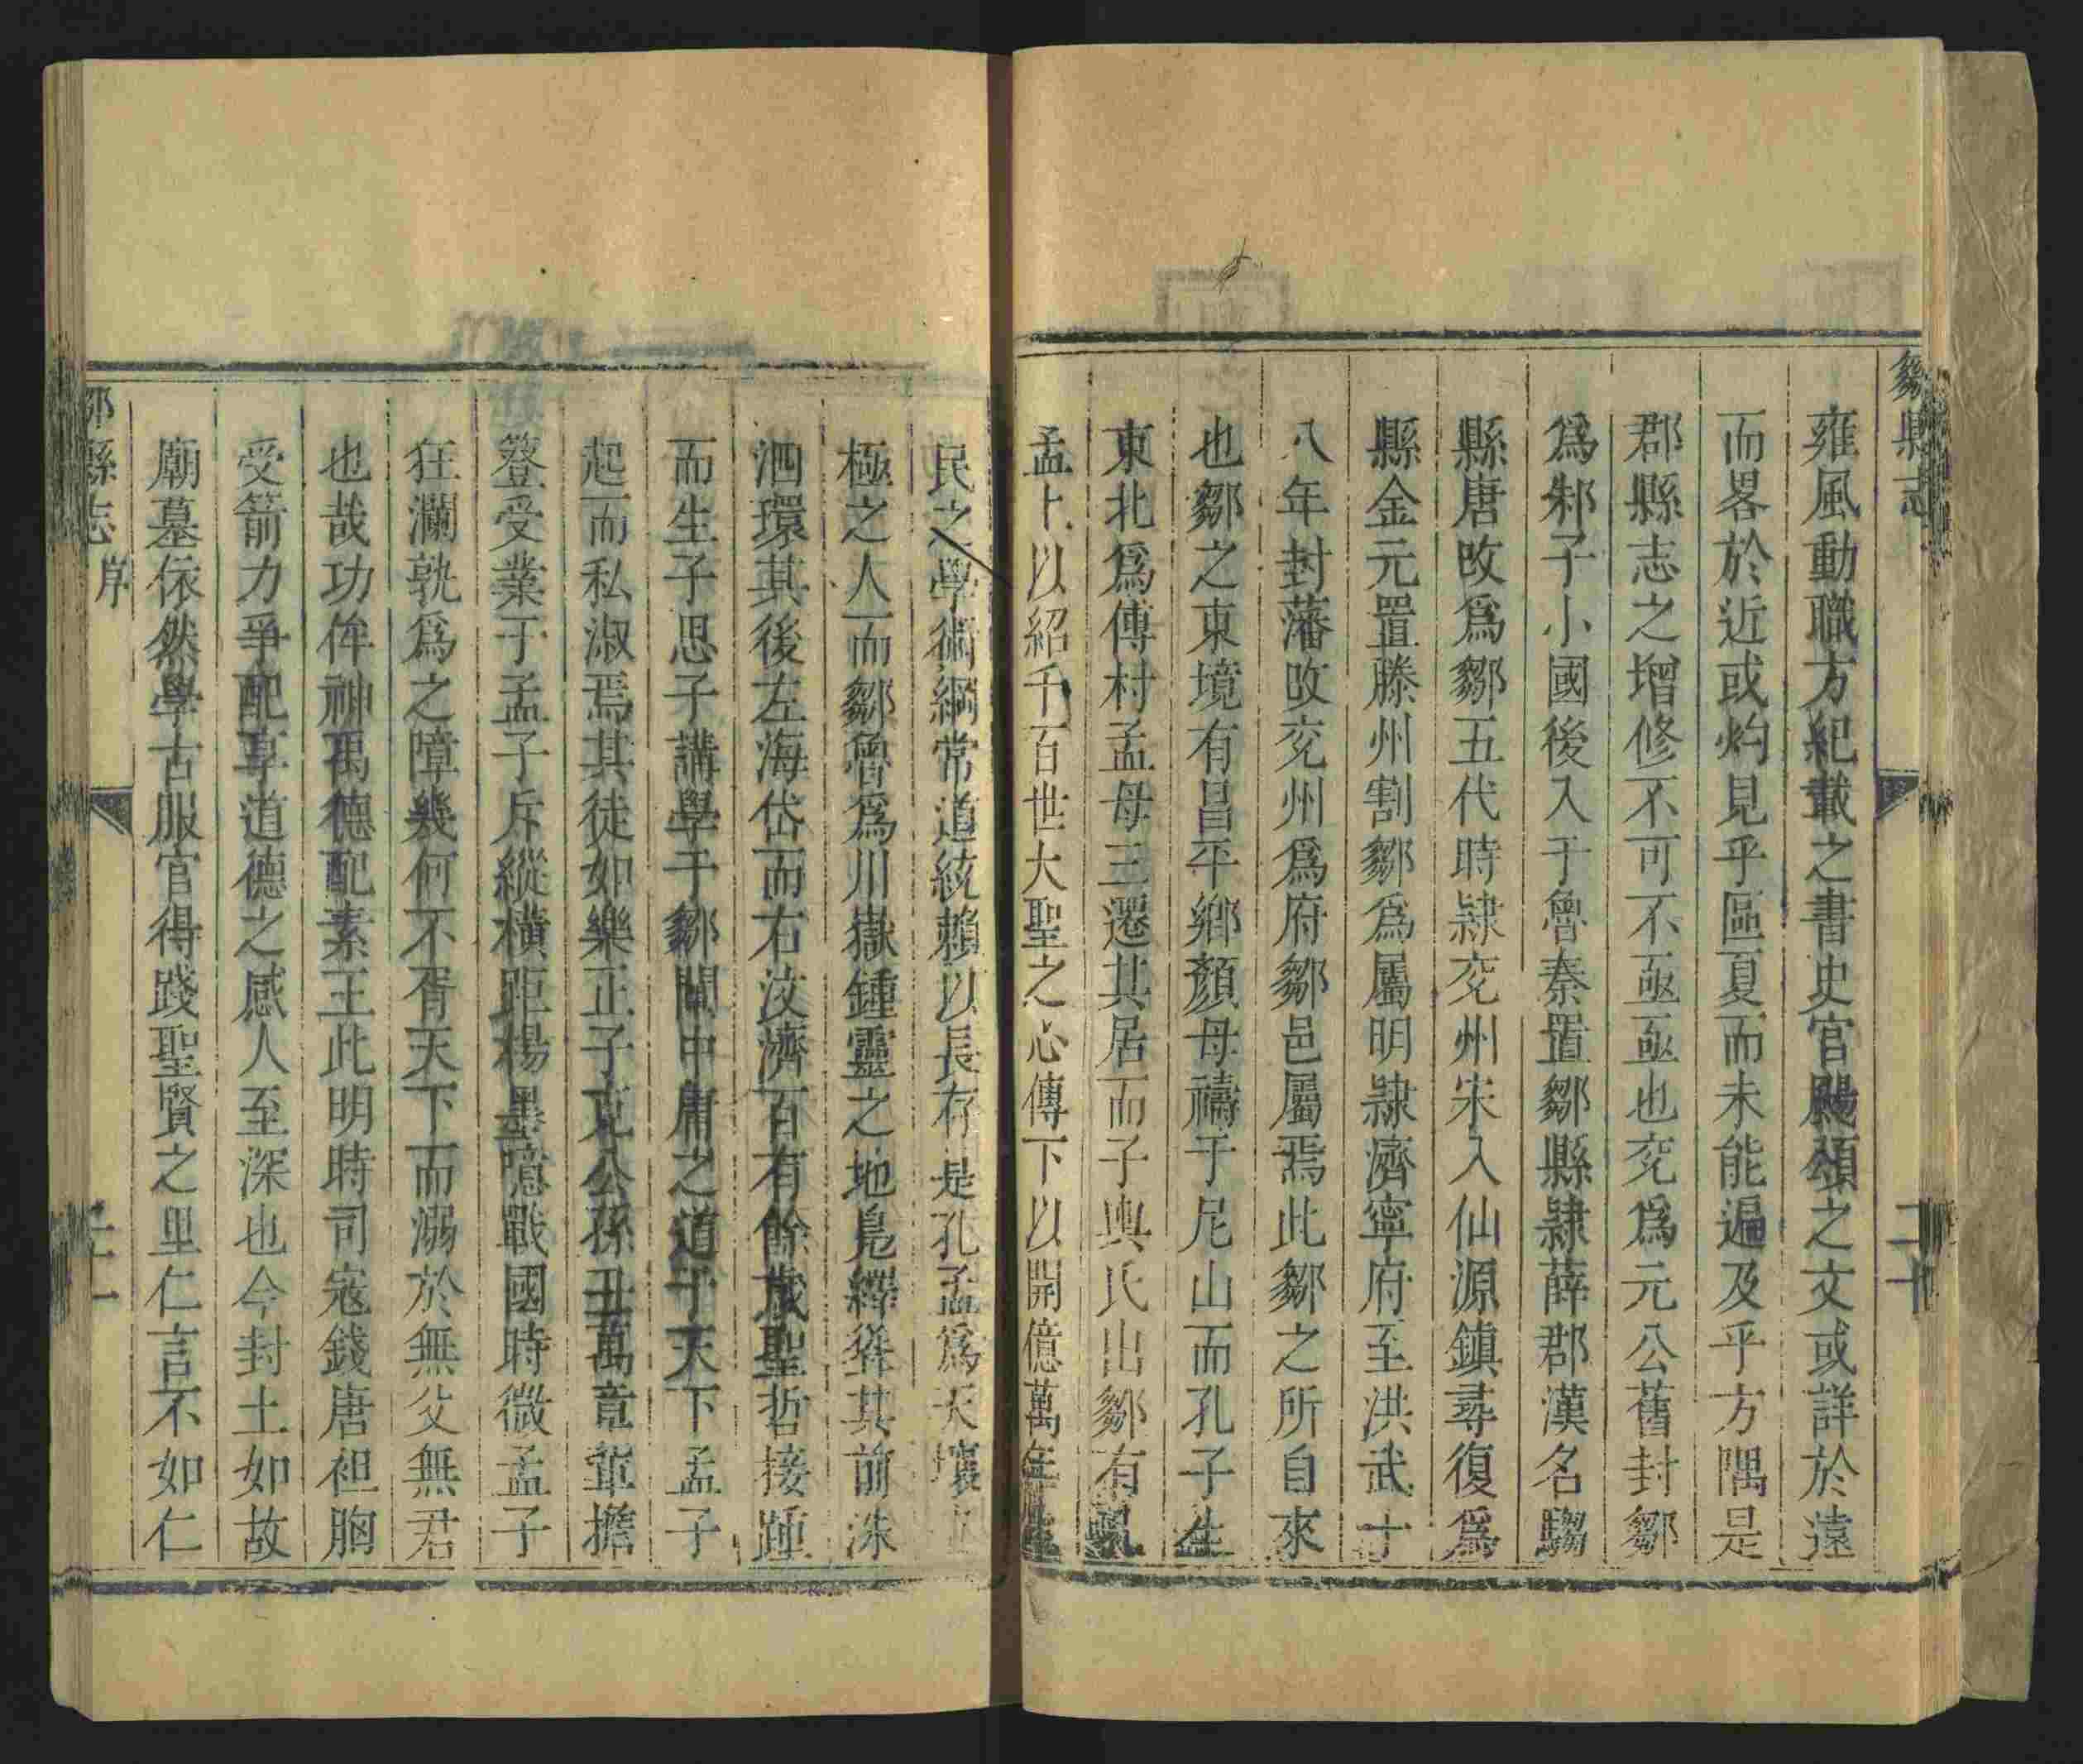 鄒縣志
二十
雍風動職方紀載之書史官颺頌之文或詳於遠
而畧於近或灼見乎區夏而未能遍及乎方隅是
郡縣志之增修不可不亟亟也兖爲元公舊封鄒
爲邾子小國後入于魯秦置鄒縣隸薛郡漢名騶
縣唐攺爲鄒五代時隸兖州宋入仙源鎮尋復爲
縣金元置滕州割鄒爲屬明隸濟寧府至洪武十
八年封藩攺兖州爲府鄒邑屬焉此鄒之所自來
也鄒之東境有昌平鄉顏母禱于尼山而孔子生
東北爲傅村孟母三遷其居而子輿氏出鄒有
孟上以紹千百世大聖之心傳下以開億萬年生
民之學術綱常道統賴以長存是孔孟爲天壤立
極之人而鄒魯爲川嶽鍾靈之地鳧繹峙其前洙
泗環其後左海岱而右汶濟百有餘歲聖哲接踵
而生子思子講學于鄒闡中庸之道于天下孟子
起而私淑焉其徒如樂正子克公孫丑萬章輩擔
簦受業于孟子斥縱橫距楊墨噫戰國時微孟子
狂瀾孰爲之障幾何不胥天下而溺於無父無君
也哉功侔神禹德配素王此明時司寇錢唐袒胸
受箭力爭配享道德之感人至深也今封土如故
廟墓依然學古服官得踐聖賢之里仁言不如仁
鄒縣志
序